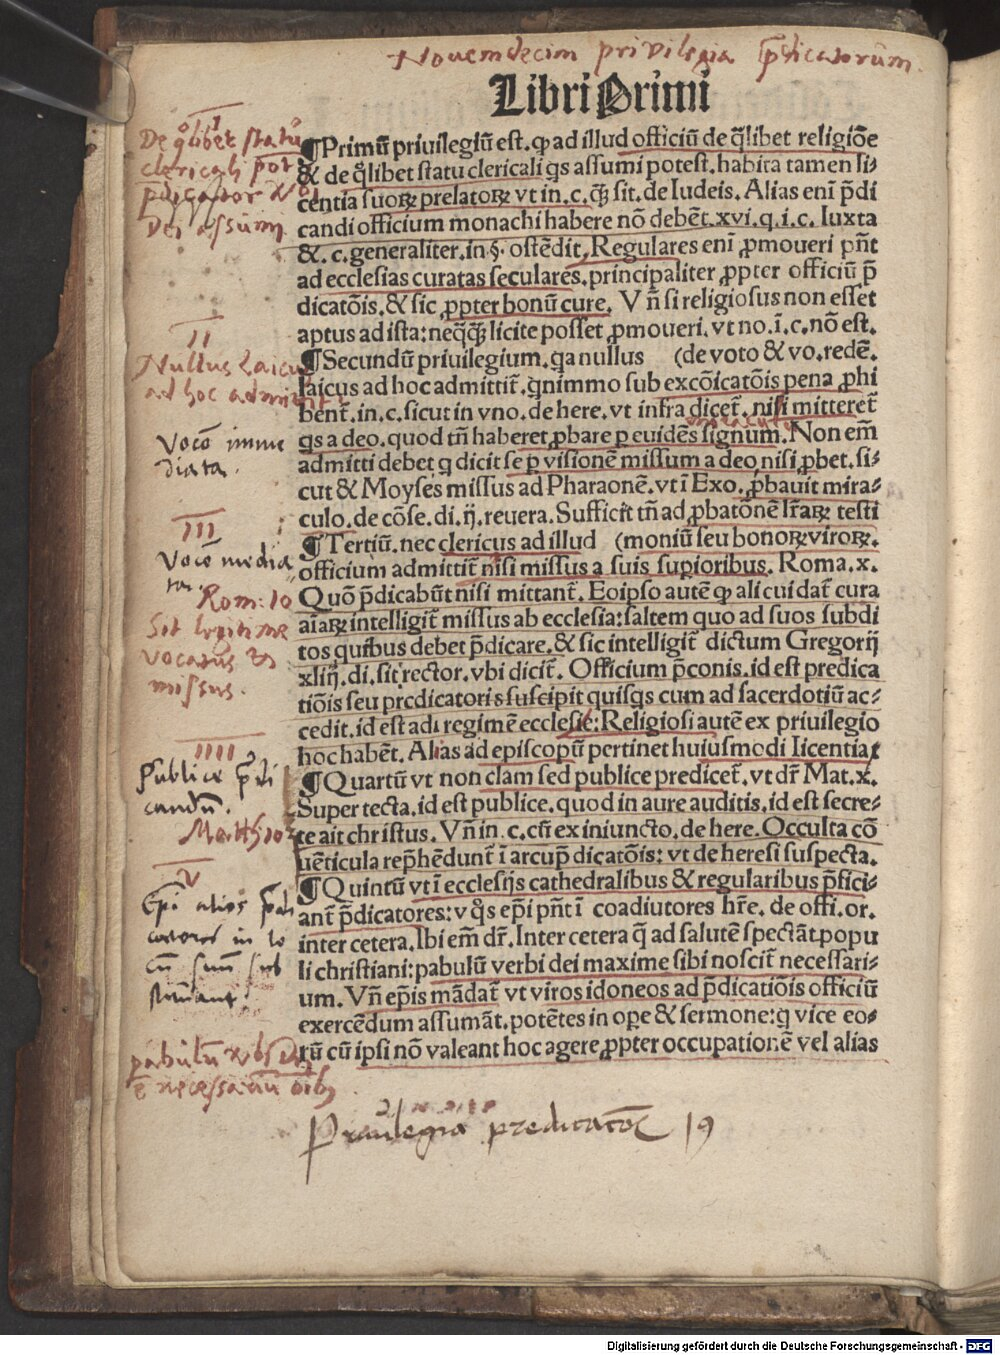 Novemdecim privilegia p̄dicatorum.
Libri Primi
¶Primū priuilegiū est. ꝙ ad illud officiū de q̄libet religiōe
& de q̊libet statu clericali q̇s assumi potest. habita tamen li⸗
centia suoꝝ prelatoꝝ vt in. c. q̄ꝗ̄ sit. de Iudeis. Alias eni p̄di
candi officium monachi habere nō debēt. xvi. q. i. c. Iuxta
&. c. generaliter. in §. ostēdit. Regulares eni ꝓmoueri pn̄t
ad ecclesias curatas seculares. principaliter ꝓpter officiū p̄
dicatōis. & sic ꝓpter bonū cure. Vn̄ si religiosus non esset
aptus ad ista: neq̄q̄ꝗ̄ licite posset ꝓmoueri. vt no. ī. c. nō est.
¶Secundū priuilegium. qa nullus (de voto & vo. redē.
laicus ad hoc admittit̄. qnimmo sub excōicatōis pena ꝓhi
bent̄. in. c. sicut in vno. de here. vt infra dicet̄. nisi mitteret̄
q̇s a deo. quod tn̄ haberet ꝓbare ꝑ euidēs signum. Non em̄
admitti debet q dicit se ꝑ visionē missum a deo, nisi ꝓbet. si⸗
cut & Moyses missus ad Pharaonē. vt ī Exo. ꝓbauit mira⸗
culo. de cōse. di. ij. reuera. Sufficit tn̄ ad ꝓbatōnē lr̄aꝝ testi
¶Tertiū. nec clericus ad illud (moniū seu bonoꝝ viroꝝ.
officium admittit̄ nisi missus a suis supioribus. Roma. x.
Quō p̄dicabūt nisi mittant̄. Eoipso autē ꝙ alicui dat̄ cura
aīaꝝ intelligit̄ missus ab ecclesia: saltem quo ad suos subdi
tos quibus debet p̄dicare. & sic intelligit̄ dictum Gregorij
xliij. di. sit rector. vbi dicit̄. Officium p̄conis. id est predica
tiōis seu predicatoris suscipit quisqs cum ad sacerdotiū ac⸗
cedit. id est adi regimē ecclesie: Religiosi autē ex priuilegio
hoc habēt. Alias ad episcopū pertinet huiusmodi licentia
¶Quartū vt non clam sed publice predicet̄. vt dr̄ Mat. x.
Super tecta. id est publice. quod in aure auditis. id est secre⸗
te ait christus. Vn̄ in. c. cū ex iniuncto. de here. Occulta cō
uēticula rep̄hēdunt̄ ī arcup̄dicatōis: vt de heresi suspecta.
¶Quintū vt ī ecclesijs cathedralibus & regularibus p̄fici⸗
ant̄ p̄dicatores: v q̊s ep̄i pn̄t ī coadiutores hr̄e. de offi. or.
inter cetera. Ibi em̄ dr̄. Inter cetera q̄ ad salutē spectāt popu
li christiani: pabulū verbi dei maxime sibi noscit̄ necessari⸗
um. Vn̄ ep̄is mādat̄ vt viros idoneos ad p̄dicatiōis officiū
exercēdum assumāt. potētes in oꝑe & sermone: q vice eo⸗
rū cū ipsi nō valeant hoc agere ꝓpter occupationē vel alias
I
De q̊libet statu
clericali pōt
p̄dicator v̄bi
Dei assumi.
II
Nullus Laicus
ad hoc admittit̄
Voco imme
diata.
III
Voco media
ta.
Rom: 10
Sit legitime
vocatus &
missus.
IIII
Publice p̄di
candū.
Matth: 10
V
Ep̄i alios p̄di
catores in lo
cū suū sub
stituant.
pabulū v̄bi Dei
ē necessariū oib9
Priuilegia predicatoꝝ 19
Digitalisierung gefördert durch die Deutsche Forschungsgemeinschaft - DFG